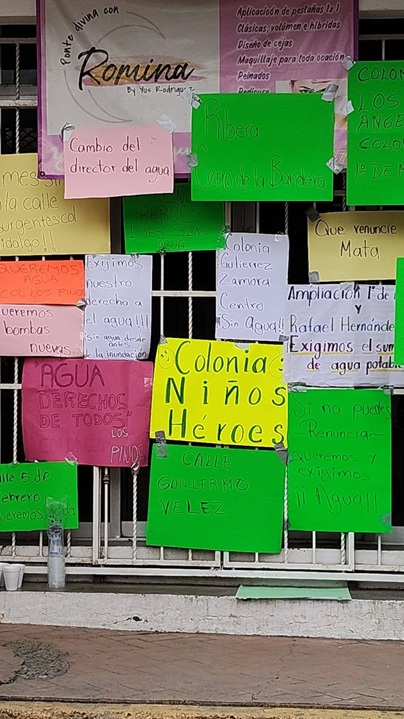 Ponte divina con
Romina
By Yus Rodriguez
Aplicación de pestañas 1x1
Clásicas, volumen e híbridas
Diseño de cejas
Maquillaje para toda ocasión
Peinados
Pedicure
Cambio del
director del agua
Ribera
Cerro de la Bandera
COLON
LOS
ANGE
COLON
1º DE M
mes si
la calle
urgentes col
idalgo!!!
Que renuncie
Mata
QUEREMOS
AGUA
COL LOS PINOS
ueremos
bombas
nuevas
Exijimos
nuestro
derecho a
el agua!!!
sin agua desde
antes
la inundación
Colonia
Gutierrez
Zamora
Centro
Sin Agua!!
Ampliación 1º de
y
Rafael Hernánde
Exigimos el sum
de agua potab
"AGUA
DERECHOS
DE TODOS"
LOS
PINOS
Colonia
Niños
Héroes
CALLE
GUILLERMO
VELEZ
Si no puedes
Renunciar
queremos y
exigimos
¡¡Agua!!
lle 5 de
ebrero
ueremos